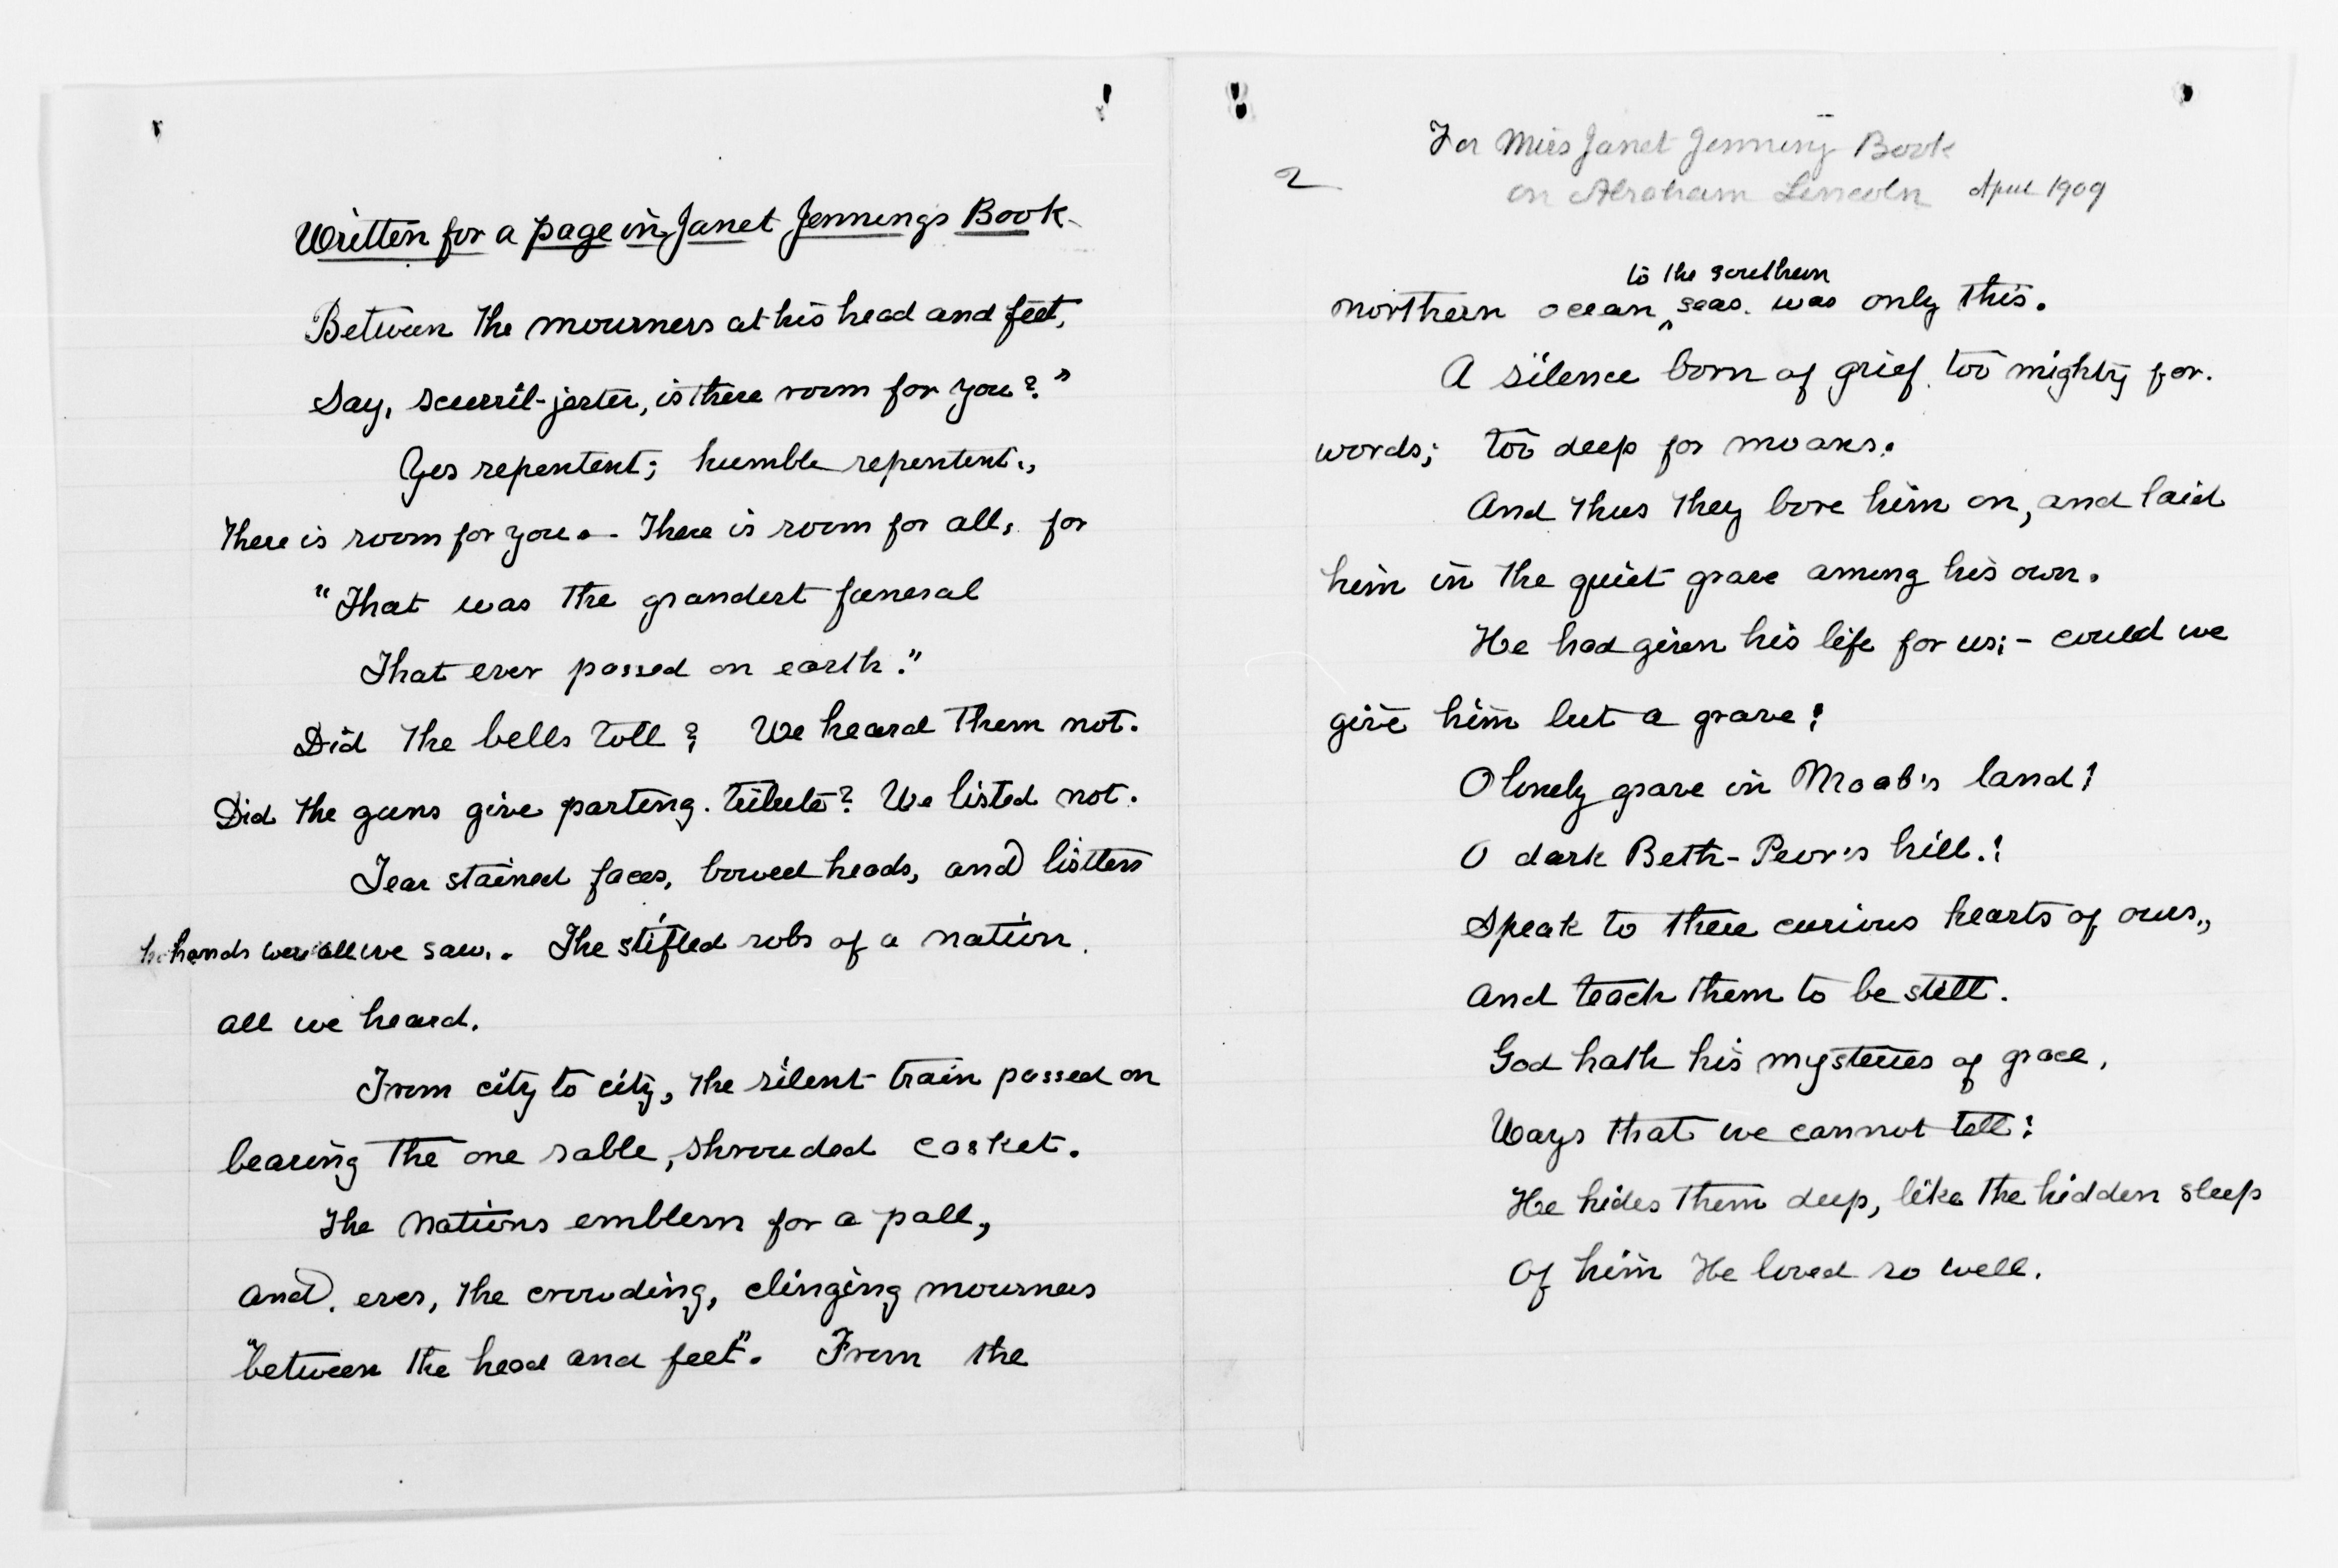 Written for a page in Janet Jennings Book
Between the mourners at his head and feet,
Say, scurril-jester, is there room for you?"
Yes repentent; humble repentent.,
There is room for you. - There is room for all, for
"That was the grandest funeral
That ever passed on earth."
Did the bells toll? We heard them not.
Did the guns give parting. tribute? We listed not.
Tear stained faces, bowed heads, and listless
hands were all we saw.. The stifled sobs of a nation.
all we heard.
From city to city, the silent train passed on
bearing the one sable, shrouded casket.
The Nations emblem for a pall,
and. ever, the crowding, clinging mourners
"between the head and feet". From the
For Miss Janet Jennings Book
2
on Abraham Lincoln April 1909
to the southern
northern ocean ^ seas. was only this.
A silence born of grief. too mighty for.
words; too deep for moans.
And thus they bore him on, and laid
him in the quiet grave among his own.
He had given his life for us; - could we
give him but a grave!
O lonely grave in Moab's land!
O dark Beth-Peor's hill.!
Speak to these curious hearts of ours.,
And teach them to be still.
God hath his mysteries of grace,
Ways that we cannot tell:
He hides them deep, like the hidden sleep
Of him He loved so well.